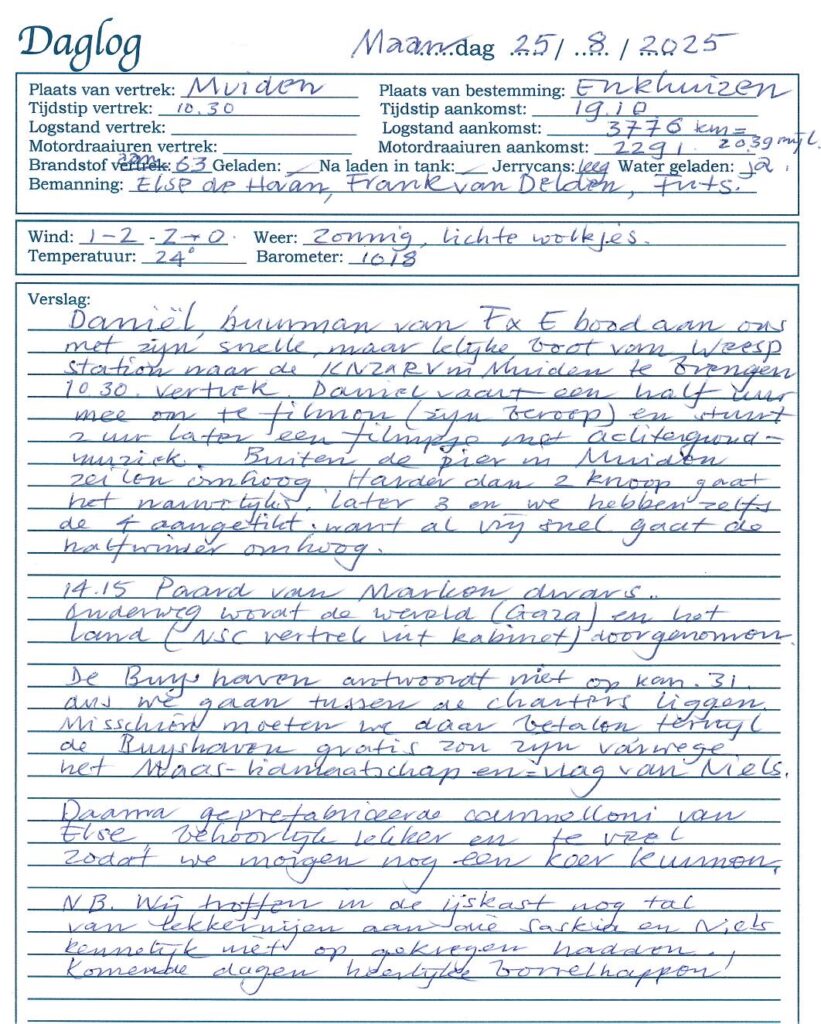 Daglog Maandag 25 / 8 / 2025
Plaats van vertrek: Muiden Plaats van bestemming: Enkhuizen
Tijdstip vertrek: 10.30 Tijdstip aankomst: 19.10
Logstand vertrek: Logstand aankomst: 3776 km =
Motordraaiuren vertrek: Motordraaiuren aankomst: 2291. 2039 mijl.
Brandstof 63 Geladen: Na laden in tank: Jerrycans: leeg Water geladen: ja.
Bemanning: Else de Haan, Frank van Delden, Futs.
Wind: 1-2 - Z→O. Weer: Zonnig, lichte wolkjes.
Temperatuur: 24° Barometer: 1018
Verslag:
Daniël, buurman van F x E bood aan ons
met zijn snelle, maar lelijke boot van Weesp
station naar de KNZ&RV in Muiden te brengen
10.30. vertrek. Daniel vaart een half uur
mee om te filmen (zijn beroep) en stuurt
2 uur later een filmpje met achtergrond-
muziek. Buiten de pier in Muiden
zeilen omhoog. Harder dan 2 knoop gaat
het nauwelijks. later 3 en we hebben zelfs
de 4 aangetikt. want al vrij snel gaat de
halfwinder omhoog.
14.15 Paard van Marken dwars.
Onderweg wordt de wereld (Gaza) en het
land (NSC vertrek uit kabinet) doorgenomen.
De Buyshaven antwoordt niet op kan. 31.
dus we gaan tussen de charters liggen.
Misschien moeten we daar betalen terwijl
de Buyshaven gratis zou zijn vanwege
het Maas-lidmaatschap en =vlag van Niels.
Daarna geprefabriceerde cannelloni van
Else, behoorlijk lekker en te veel
zodat we morgen nog een keer kunnen.
N.B. Wij troffen in de ijskast nog tal
van lekkernijen aan die Saskia en Niels
kennelijk niet op gekregen hadden.,
Komende dagen heerlijke borrelhappen!